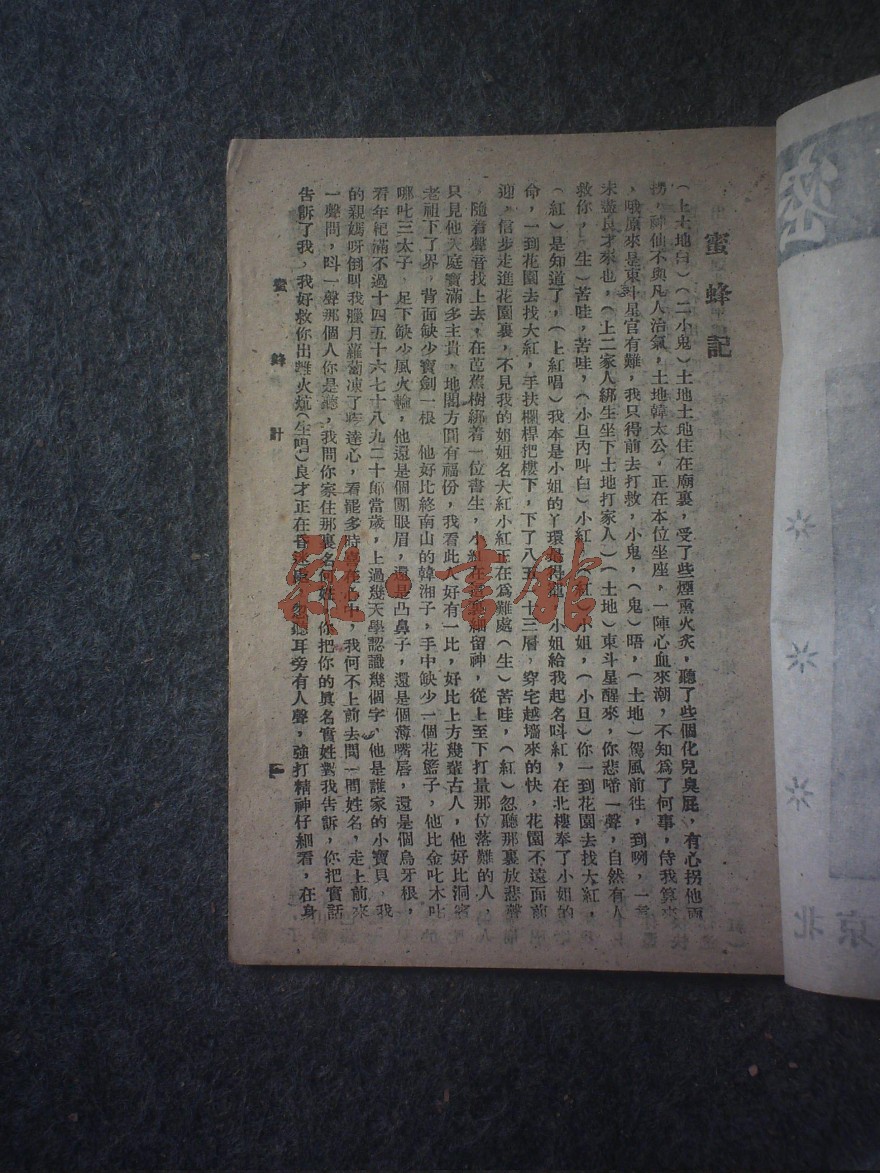 蜜蜂記
(上土地白)(二小鬼)土地土地住在廟裏，受了些煙熏火炙，聽了些個化兒臭屁，有心拐他兩
拐，神仙不與凡人治氣，土地韓太公，正在本位坐座，一陣心血來潮，不知為了何事，待我算來
，哦原來是東斗星官有難，我只得前去打救，小鬼，(鬼)唔，(土地)駕風前往，到咧，一言
未盡良才來也，(上二家人綁生坐下土地打家人)(土地)東斗星醒來，你悲啼一聲，自然有人
救你，(生)苦哇，苦哇，(小旦內叫白)小紅，(紅)小姐，(小旦)你一到花園去找大紅，
(紅)是知道了，(上紅唱)我本是小姐的丫環 小姐給我起名叫紅，在北樓奉了小姐的
命，一到花園去找大紅，手扶欄桿把樓下，下了八五一十三層，穿宅越墻來的快，花園不遠面前
迎，信步走進花園裏，不見我的姐姐名大紅小紅正在為難處(生)苦哇，(紅)忽聽那裏放悲聲
，隨着聲音找上去，在芭蕉樹綁着一位書生，小 留神，從上至下打量那位落難的人，
只見他天庭寶滿多主貴，地閣方圓有福份，我看此人好有一比，好比上方幾輩古人，他好比洞賓
老祖下了界，背面缺少寶劍一根 他好比終南山的韓湘子，手中缺少一個花籃子，他比金叱木叱
哪吒三太子，足下缺少風火輪，他還是個團眼眉，還是凸鼻子，還是個薄嘴唇，還是個烏牙根，
看年紀滿不過十四五十六七十八九二十郎當歲，上過幾天學認識幾個字，他是誰家的小寶貝，我
的親媽呀倒叫我臘月蘿蔔凍了 達心，看罷多時喜在心中，我何不上前去問一問姓名，走上前來
一聲問，叫一聲那個人你是聽，我問你家住那裏名何姓 你把你的真名實姓對我告訴，你把實話
告訴了我，我好救你出離火坑(生唱)良才正在昏迷處，忽聽耳旁有人聲，強打精神仔細看，在身
蜜 蜂 計 一
雜·書館
北京